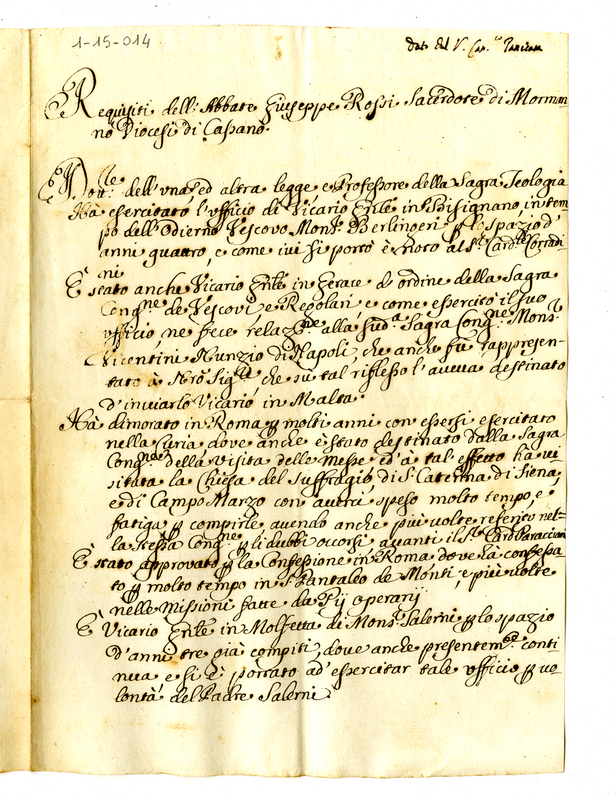 1-15-014
Dato dal V. Car.
Requisiti dell'Abbate Giuseppe Rossi Sacerdote di Morman
no Diocesi di Cassano.
Dott.re dell'una, ed altra legge e Professore della Sagra Teologia
Hà esercitato l'ufficio di Vicario Gnle in Bisignano, in tem
po dell'Odierno Vescovo Mons.r Berlingeri p lo spazio d'
anni quattro, e come ivi si portò è noto al S.r Card.le Corradi
ni
È stato anche Vicario Gnle in Gerace d'ordine della Sagra
Cong.ne de Vescovi e Regolari, e come esercitò il suo
ufficio, ne fece relaz.ne alla sud.a Sagra Cong.ne Mons.r
Vicentini Nunzio di Napoli, che anche fu rappresen-
tato à Nrõ Sig.re che sù tal riflesso l'aveva destinato
d'inviarlo Vicario in Malta.
Hà dimorato in Roma p molti anni con essersi esercitato
nella Curia dove anche è stato destinato dalla Sagra
Cong.ne della Visita delle Messe, ed à tal effetto hà vi
sitata la Chiesa del Suffragio di S. Caterina di Siena,
e di Campo Marzo con averci speso molto tempo, e
fatiga p compirle avendo anche più volte referito nel-
la stessa Cong.ne p li dubbi occorsi avanti il S.r Card. Paracciani
È stato approvato p la Confessione in Roma dove hà confessa
to p molto tempo in S. Pantaleo de Monti, e più volte
nelle Missioni fatte da Pij operarij
È Vicario Gnle in Molfetta di Mons.r Salerni p lo spazio
d'anni tre già compiti, dove anche presentem.te conti
nua e si è portato ad'esercitar tale ufficio p vo
lontà del Padre Salerni